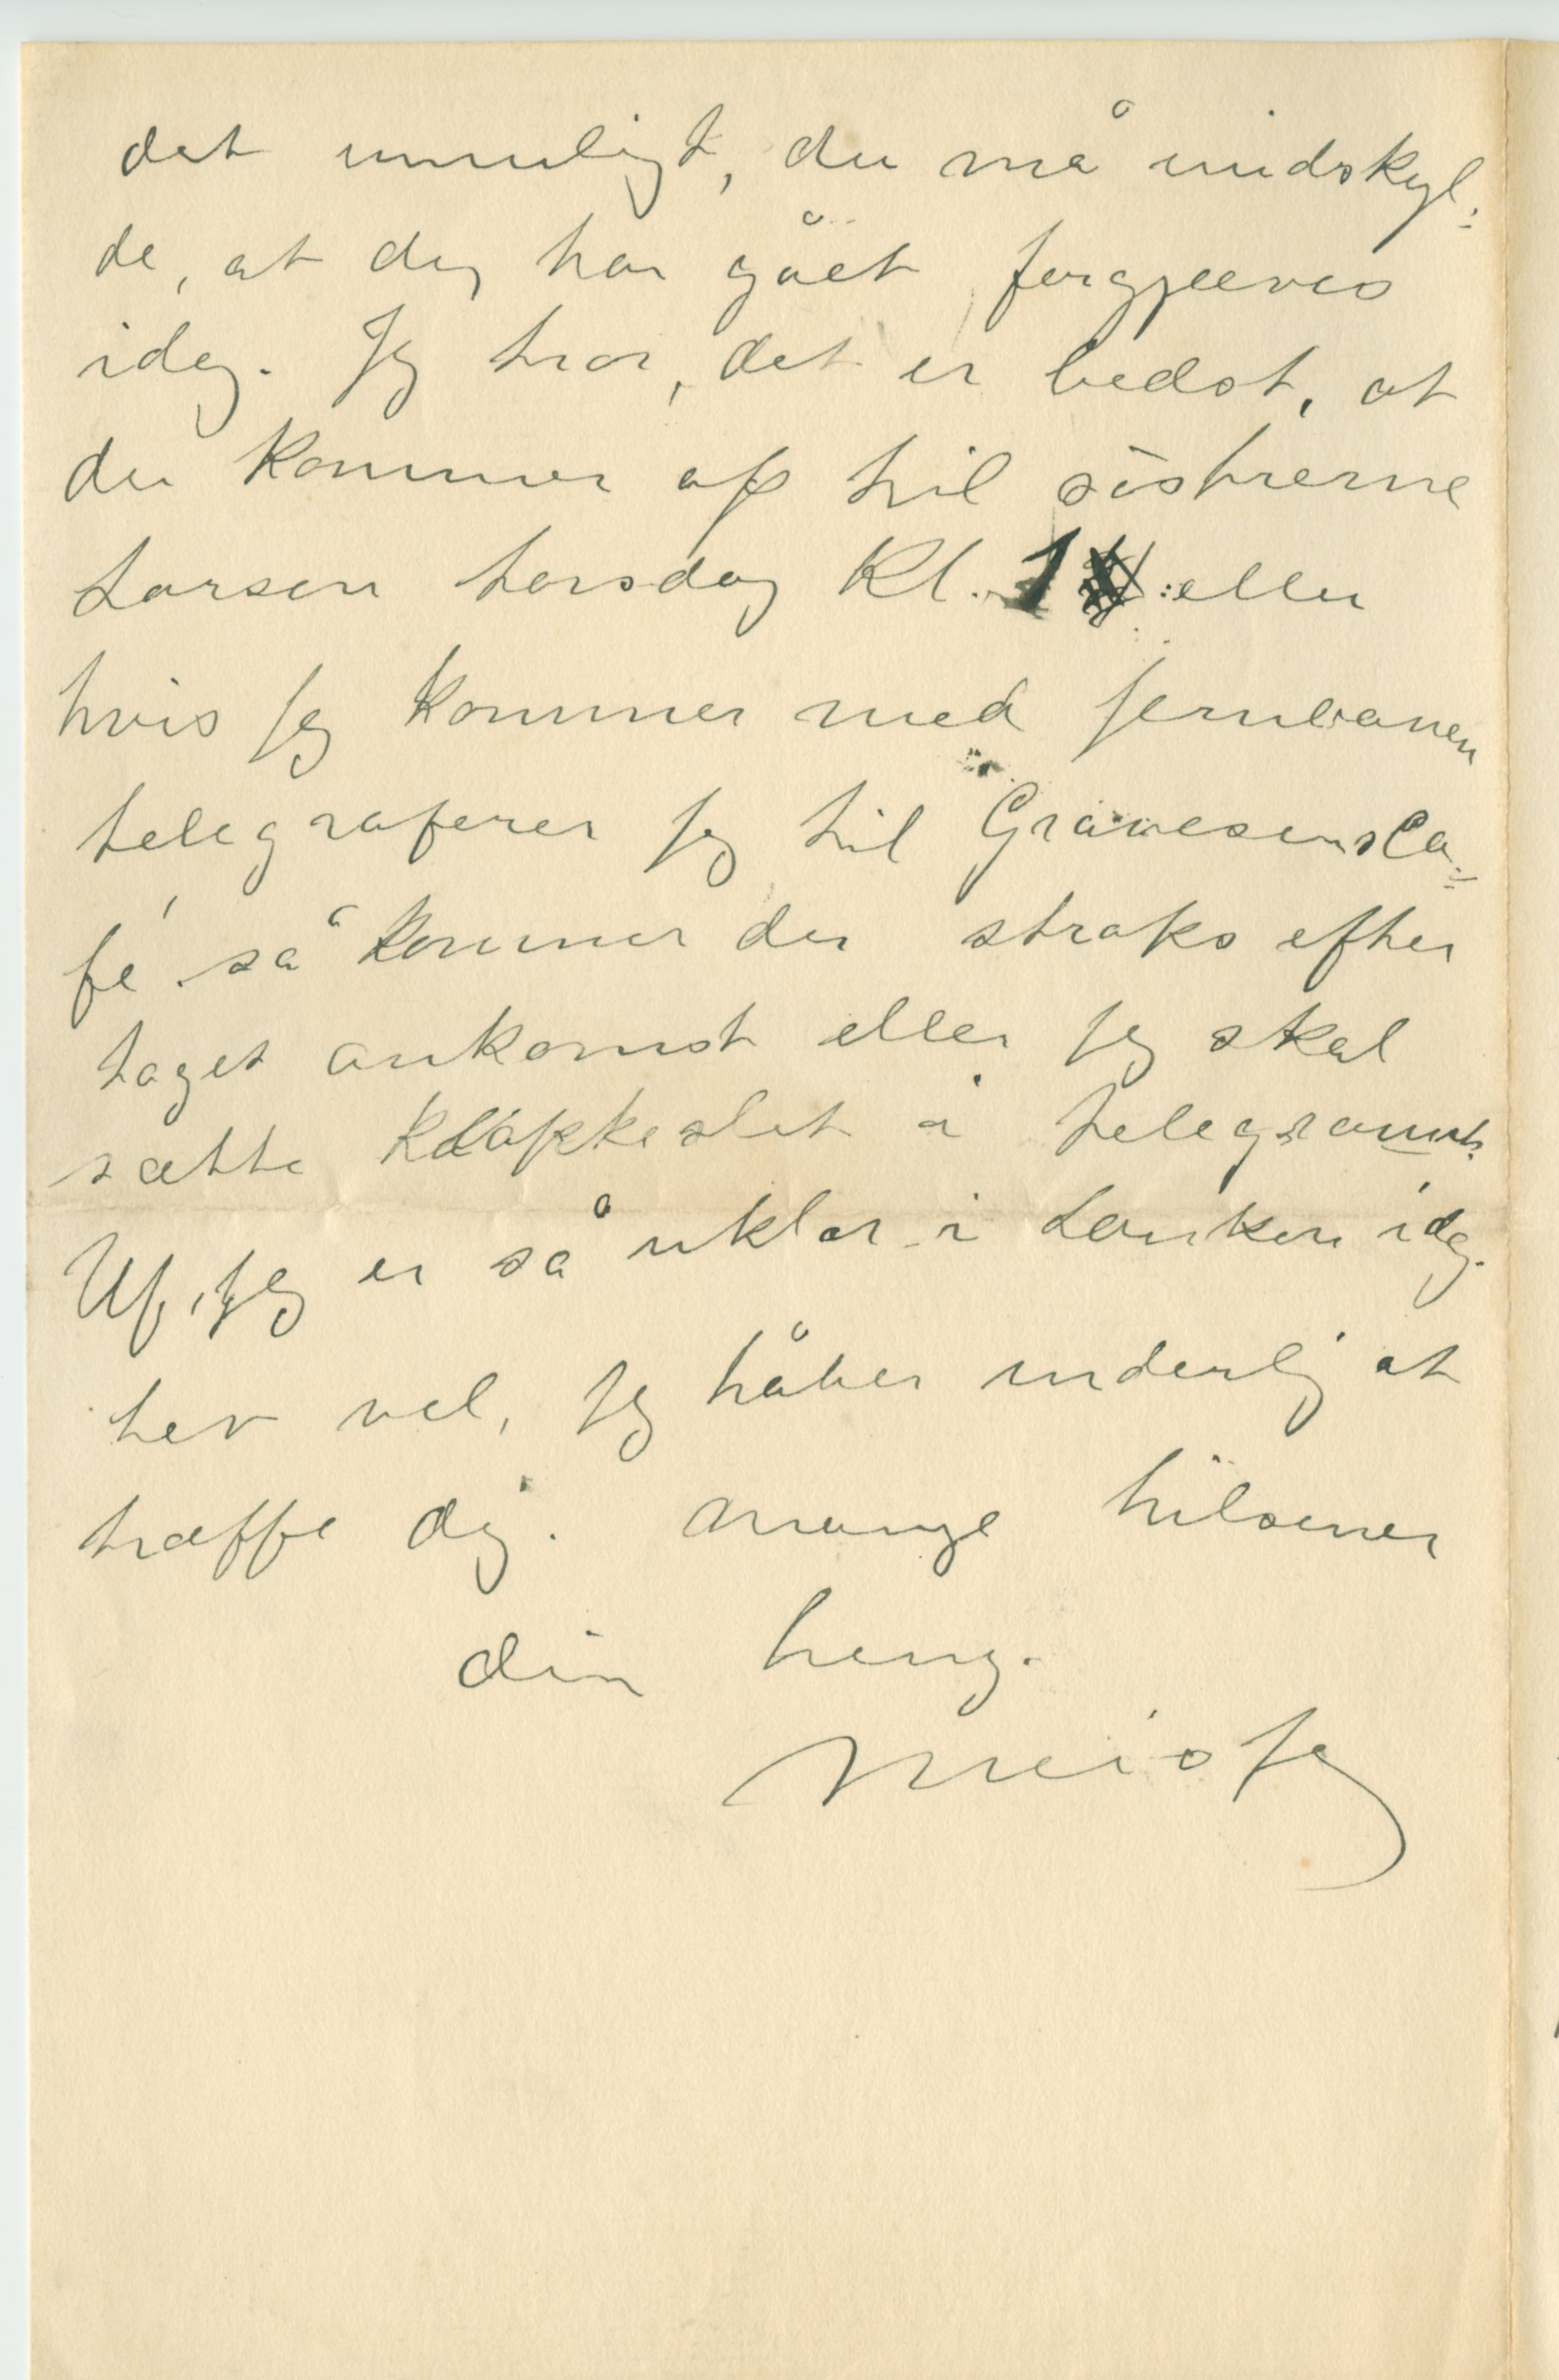 det umuligt, du må undskyl-
de, at dej har gået forgjæves
idag. Jeg tror, det er bedst, at
du kommer op til søstrerne
Larsen torsdag Kl. 1 eller
hvis jeg kommer med jernbanen
telegraferer jeg til Gravesens Ca-
fé så kommer du straks efter
toget ankomst eller jeg skal
sætte klokkeslet i telegramt.
Uf, jeg er så uklar i tanken idag.
Lev vel, jeg håber inderlig at
træffe dig. Mange hilsener
din heng.